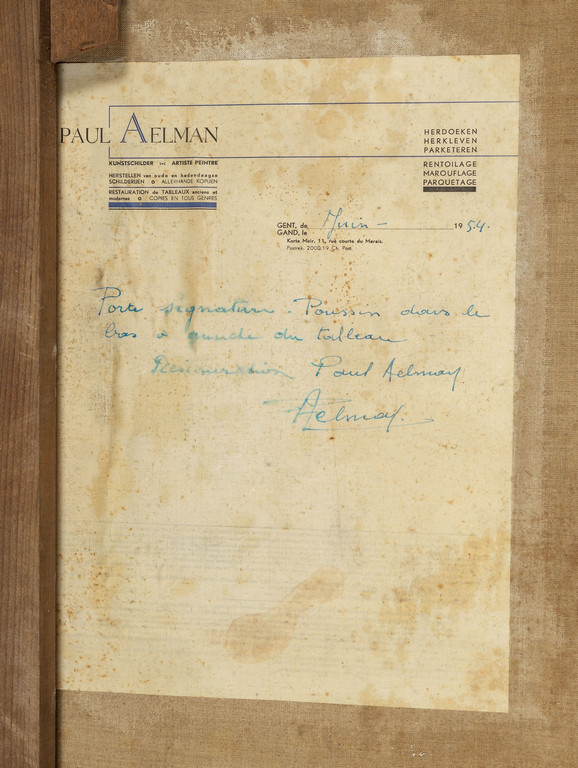 PAUL AELMAN
KUNSTSCHILDER ARTISTE-PEINTRE
HERSTELLEN van oude en hedendaagse
SCHILDERIJEN ✿ ALLERHANDE KOPIJEN
RESTAURATION de TABLEAUX anciens et
modernes ✿ COPIES EN TOUS GENRES
HERDOEKEN
HERKLEVEN
PARKETEREN
RENTOILAGE
MAROUFLAGE
PARQUETAGE
GENT, de
GAND, le Juin - 1954.
Korte Meir, 11, rue courte du Marais.
Postrek. 2000.19 Ch. Post.
Porte signature. Poussin dans le
bas à gauche du tableau
Rénovation Paul Aelman
Aelman.